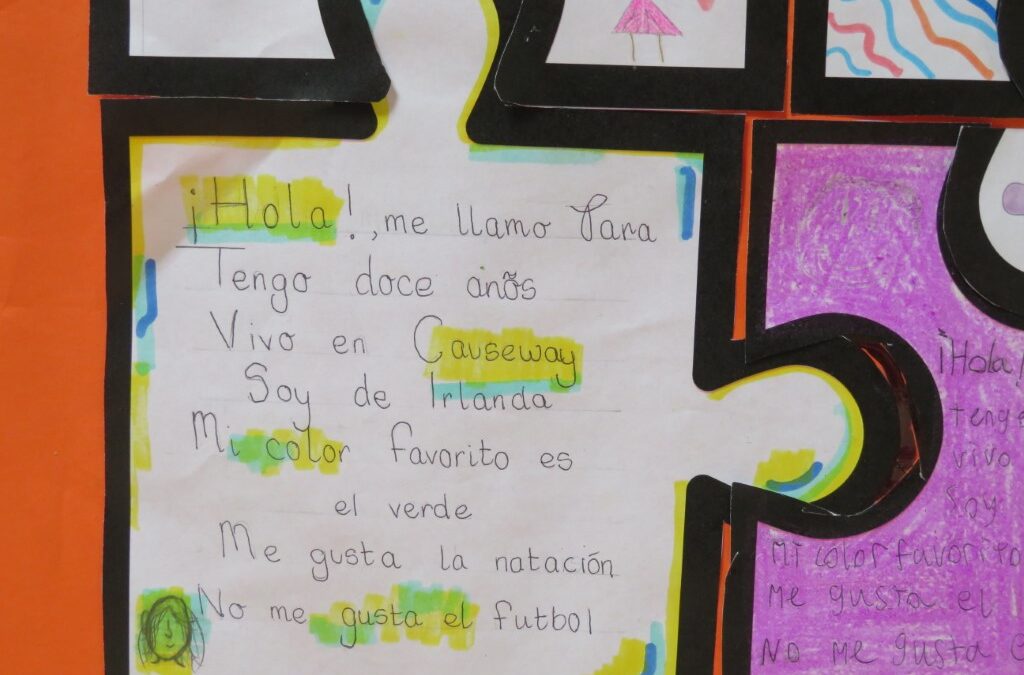 ¡Hola!, me llamo
Tengo doce anõs
Vivo en Causeway
Soy de Irlanda
Mi color favorito es
el verde
Me gusta la natación
No me gusta el futbol
¡Hola!
teng
vivo
Soy
Mi color favorito
Me gusta el
No me gusta e